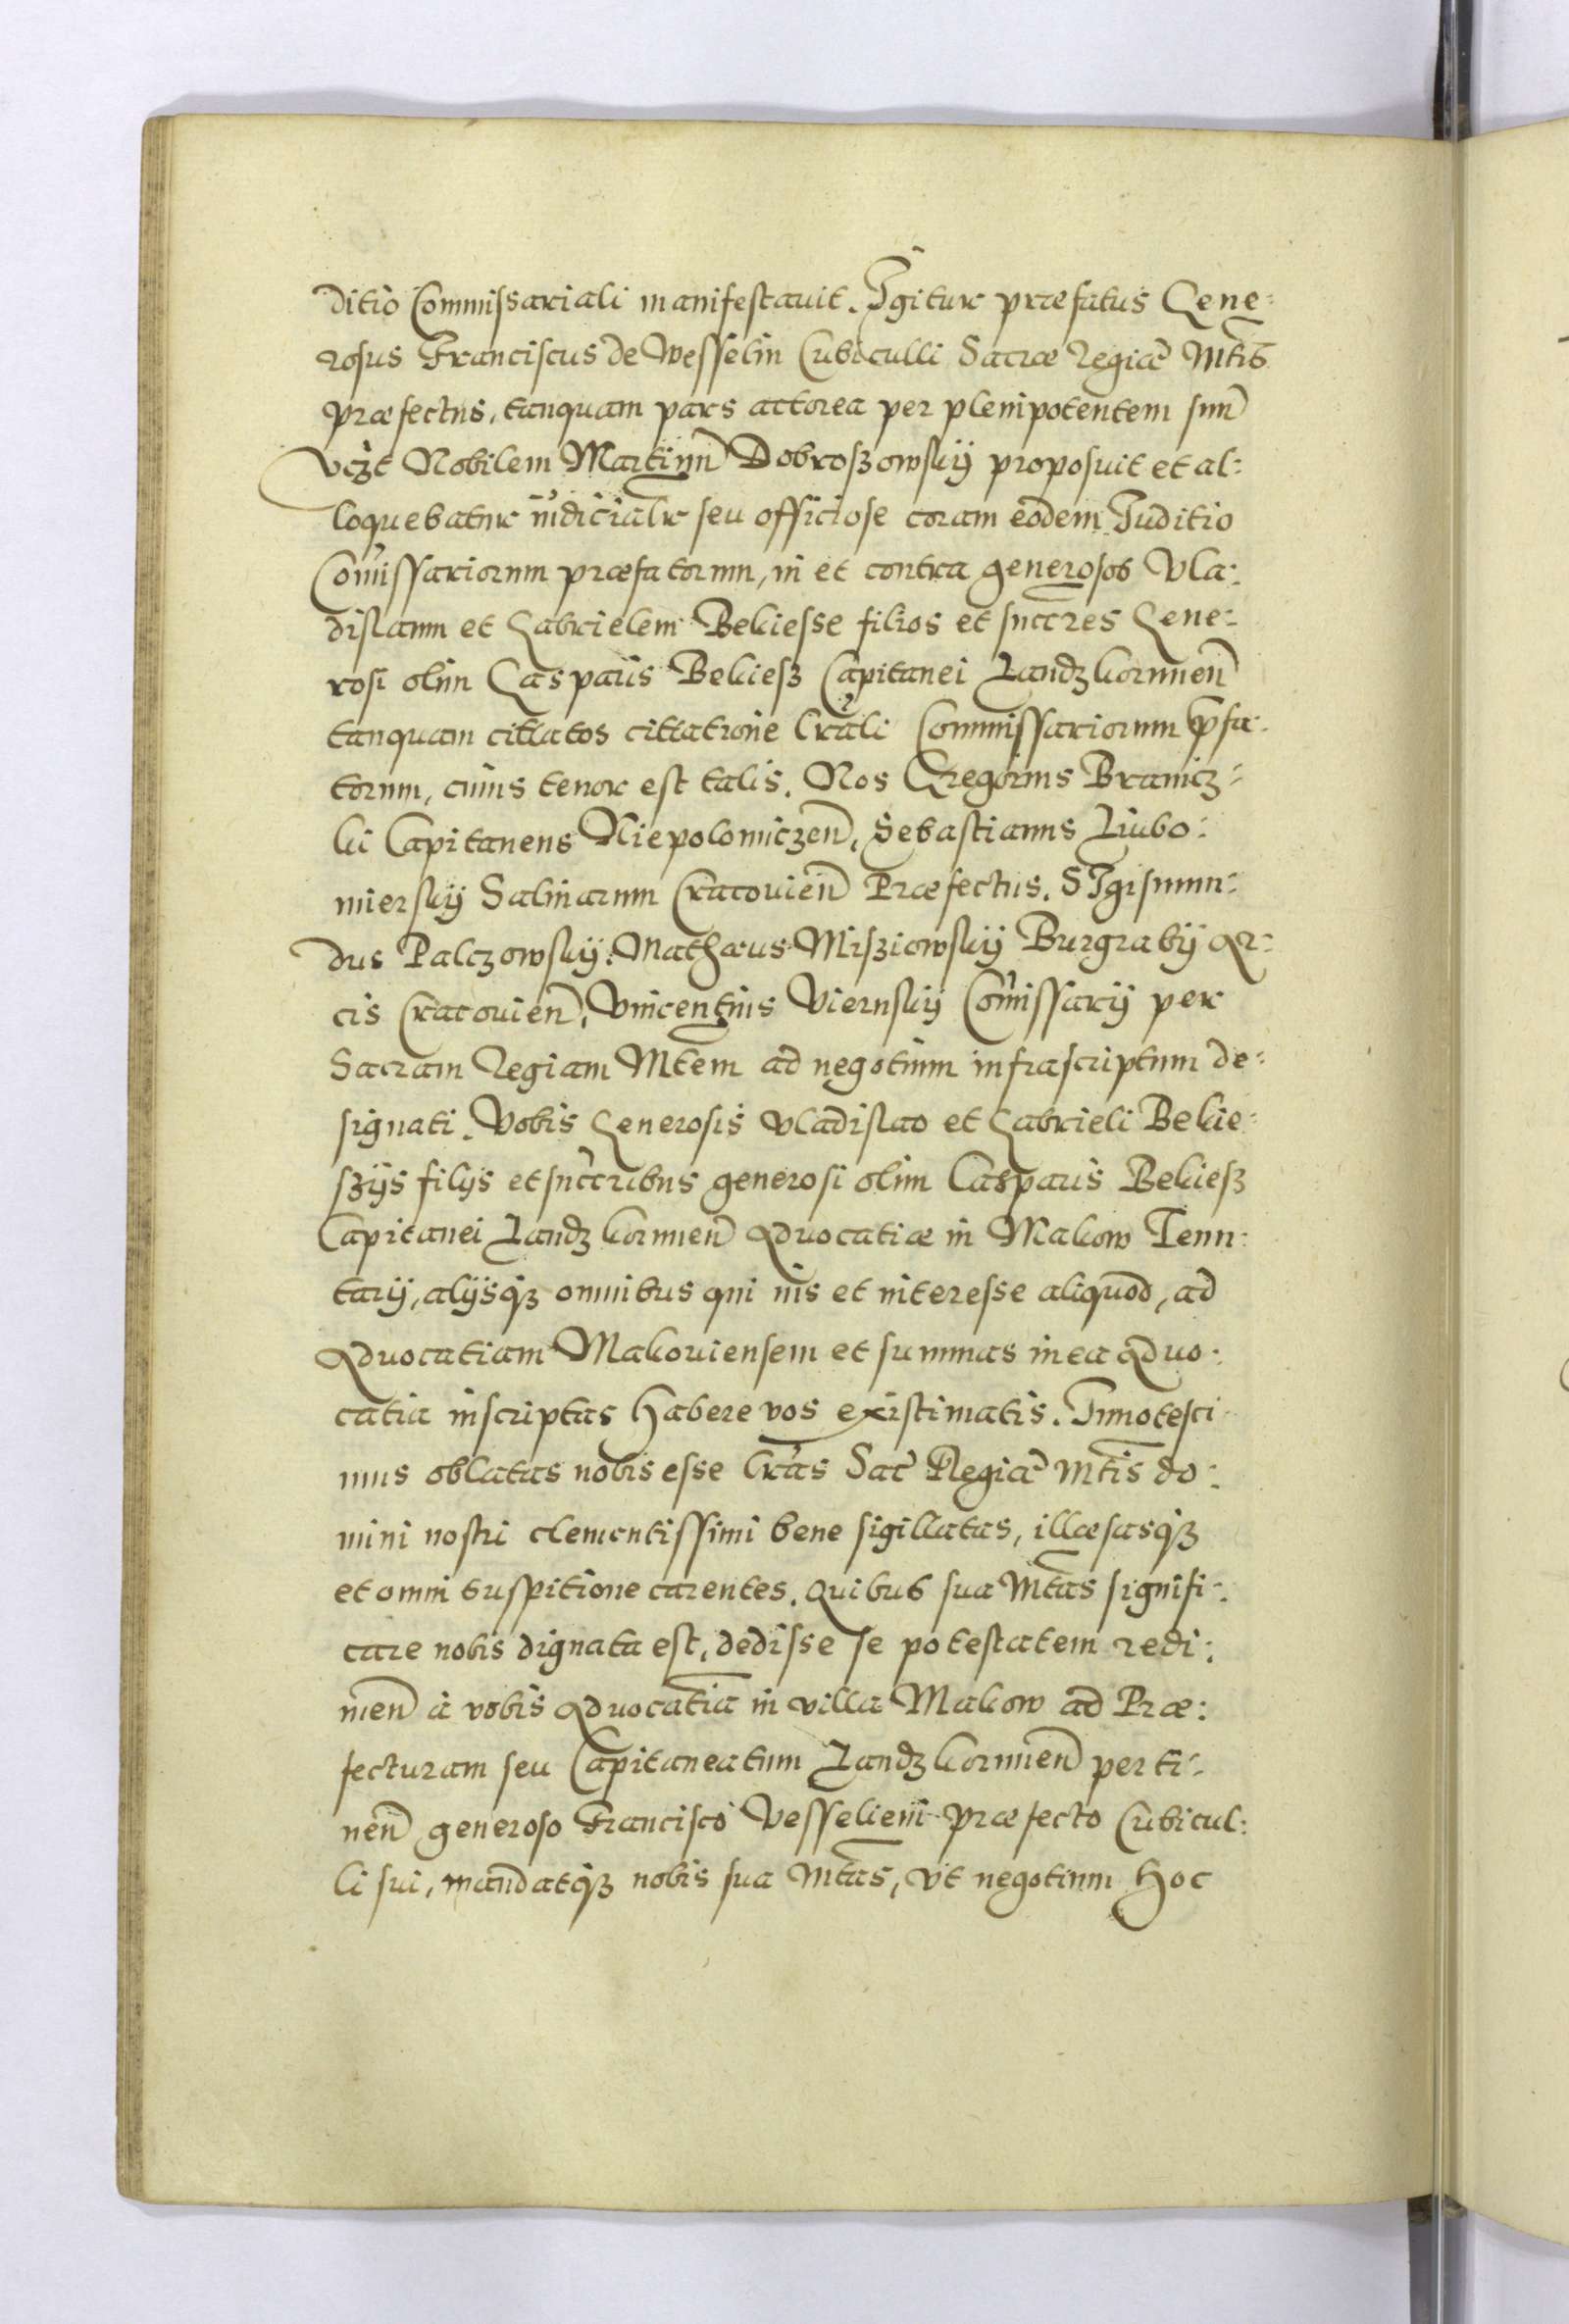 ditio Commissariali manifestavit. Igitur præfatus Gene:
rosus Franciscus de Wesselin Cubiculli Sacræ Regiæ Mtis
præfectus, tanquam pars actorea per plenipotentem suu
Vczt Nobilem Martinu Dobroszowskÿ proposuit et al:
loquebatur iudicialr seu officiose coram eodem Juditio
Comissariorum præfatorum, in et contra generosos Vla:
dislaum et Gabrielem Bekiesse filios et succres Gene:
rosi olim Casparis Bekiesz Capitanei Landzkorunen
tanquam cittatos cittatione lrali Commissariorum pfa:
torum, cuius tenor est talis. Nos Gregorius Branicz:
ki Capitaneus Niepolomiczen, Sebastianus Liubo:
mierskÿ Salinarum Cracovien Præfectus. SIgismun:
dus Palczowskÿ. Mathæus Misziowskÿ Burgrabÿ Ar:
cis Cracovien, Vincentius Viernskÿ Comissarÿ per
Sacram Regiam Mtem ad negotium infrascriptum de:
signati. Vobis Generosis Vladislao et Gabrieli Bekie:
szÿs filÿs et succribus generosi olim Casparis Bekiesz
Capitanei Landzkorunen Advocatiæ in Makow Tenu:
tarÿ, alÿsqz omnibus qui ius et interesse aliquod, ad
Advocatiam Makoviensem et summas in ea Advo:
catia inscriptas habere vos existimatis. Innotesci:
mus oblatas nobis esse lras Sac Regiæ Mtis do:
mini nostri clementissimi bene sigillatas, illæsasqz
et omni suspitione carentes. Quibus sua Mtas signifi:
care nobis dignata est, dedisse se potestatem redi:
men à vobis Advocatia in villa Makow ad Præ:
fecturam seu Capitaneatum Landzkorunen perti:
nen generoso Francisco Vesseliem præfecto Cubicul:
li sui, mandatqz nobis sua Mtas, vt negotium hoc